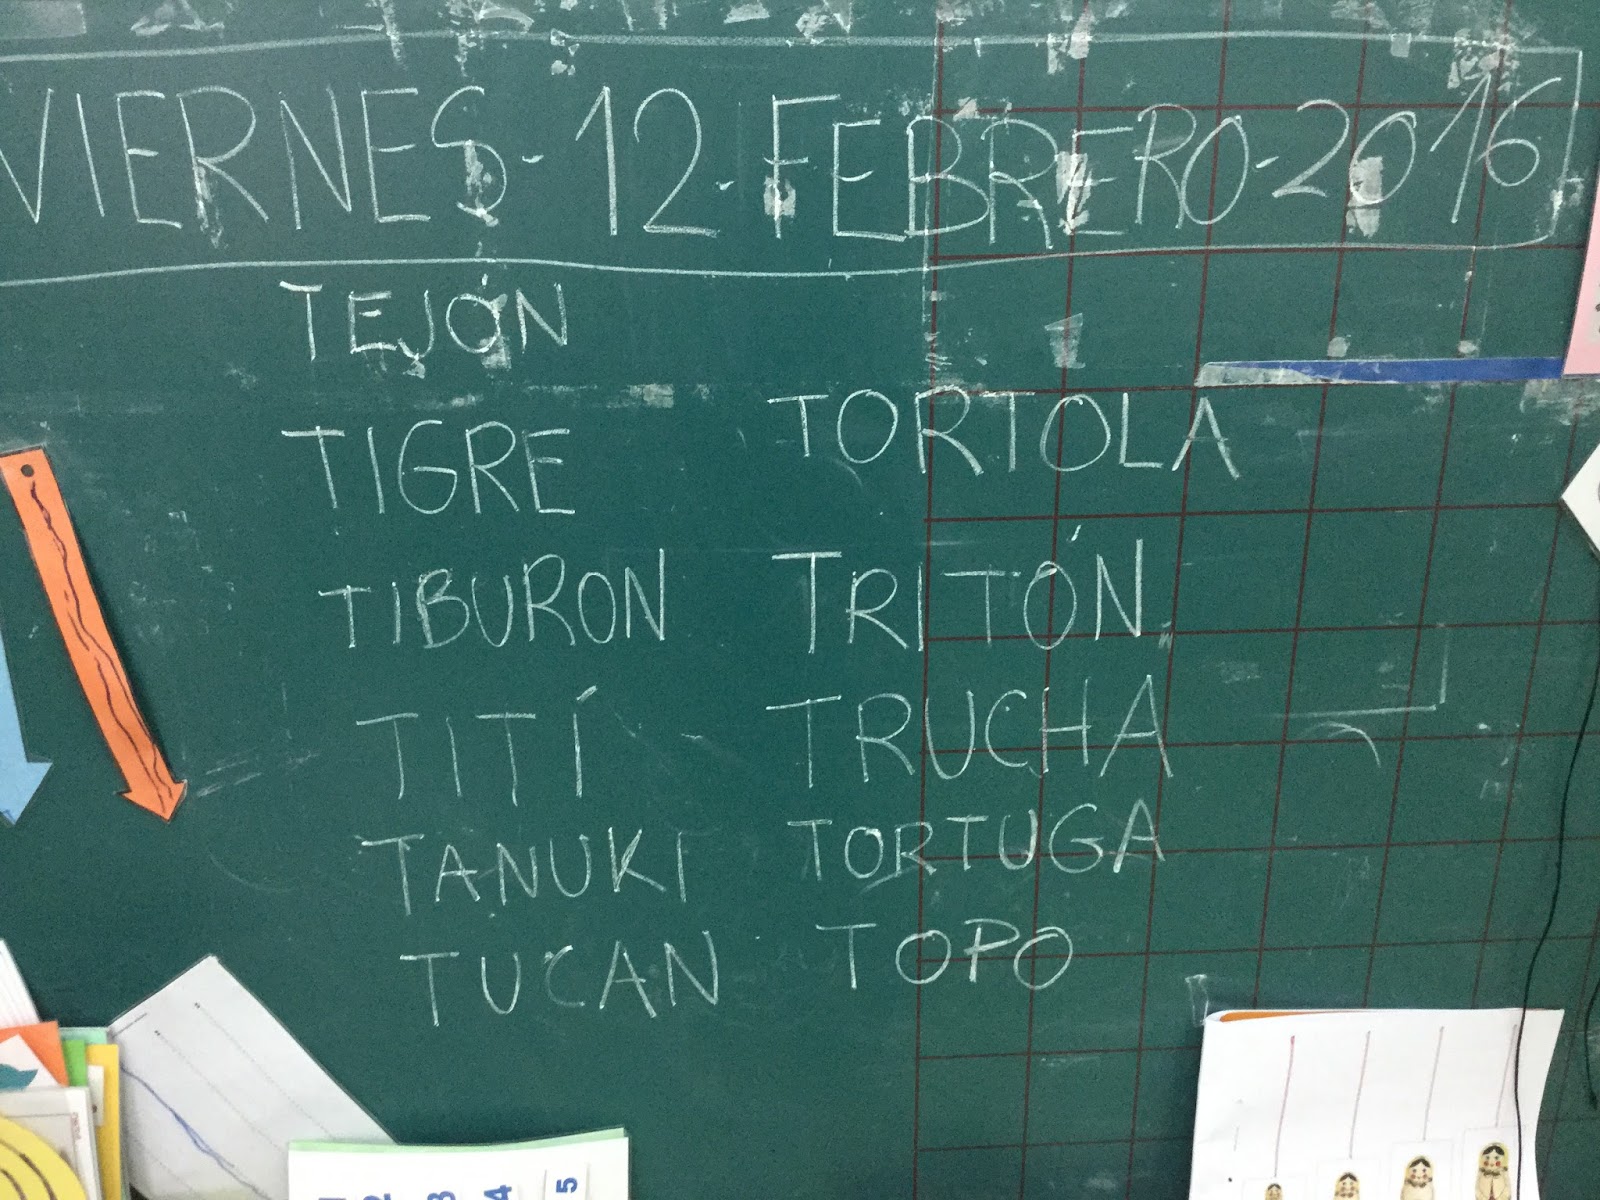 VIERNES-12-FEBRERO-2016
TEJÓN
TIGRE
TIBURON
TITÍ
TANUKI
TUCAN
TORTOLA
TRITÓN
TRUCHA
TORTUGA
TOPO
1 2 3 4 5